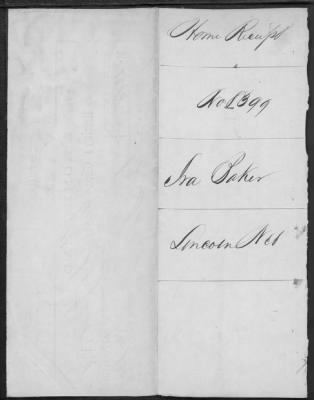 Home Receipt
No L399
Ira Baker
Lincoln Neb